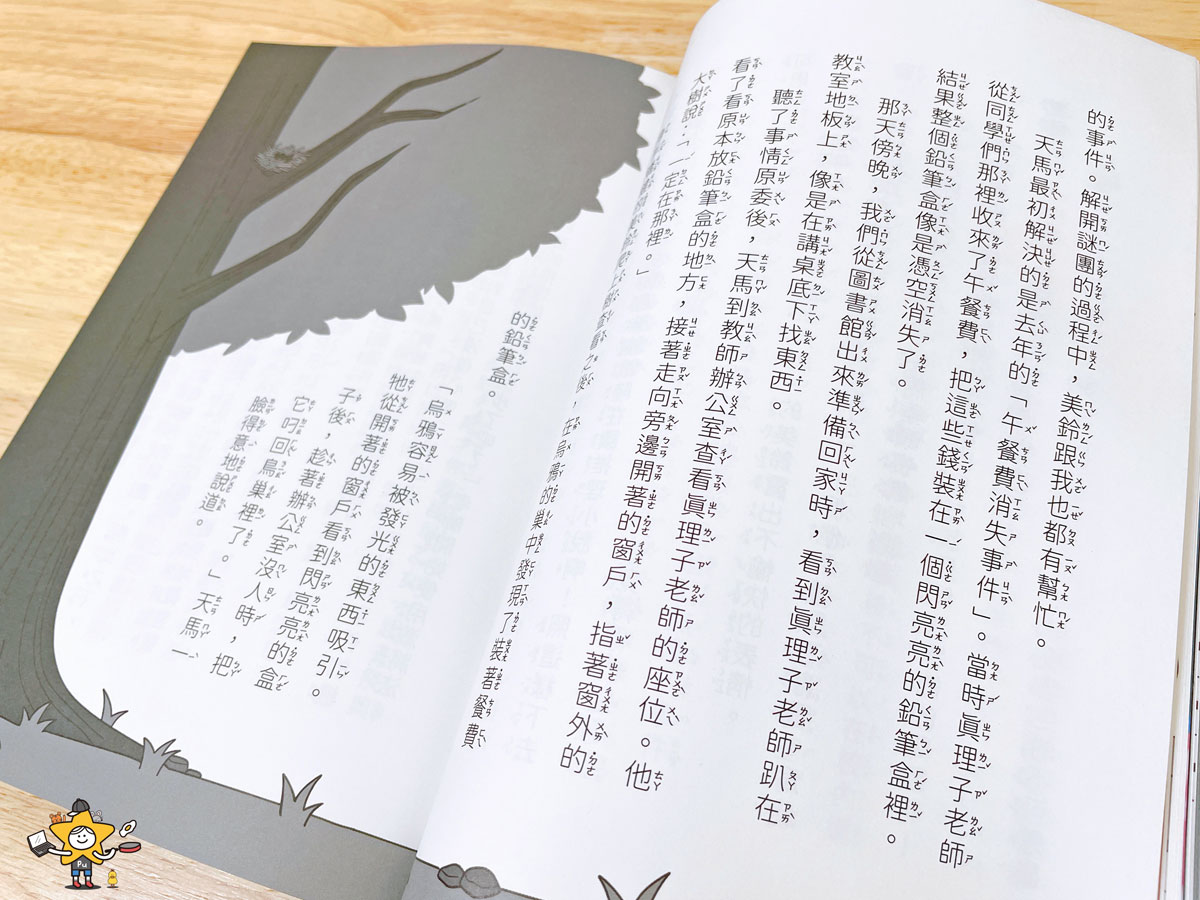 的事件。解開謎團的過程中，美鈴跟我也都有幫忙。
天馬最初解決的是去年的「午餐費消失事件」。當時眞理子老師
從同學們那裡收來了午餐費，把這些錢裝在一個閃亮亮的鉛筆盒裡。
結果整個鉛筆盒像是憑空消失了。
那天傍晚，我們從圖書館出來準備回家時，看到眞理子老師趴在
教室地板上，像是在講桌底下找東西。
聽了事情原委後，天馬到教師辦公室查看眞理子老師的座位。他
看了看原本放鉛筆盒的地方，接著走向旁邊開著的窗戶，指著窗外的
大樹說：「一定在那裡。」
上樹查看之後，在烏鴉的巢中發現了裝著餐費
的鉛筆盒。
「烏鴉容易被發光的東西吸引。
牠從開著的窗戶看到閃亮亮的盒
子後，趁著辦公室沒人時，把
它叼回鳥巢裡了。」天馬一
臉得意地說道。
Pu